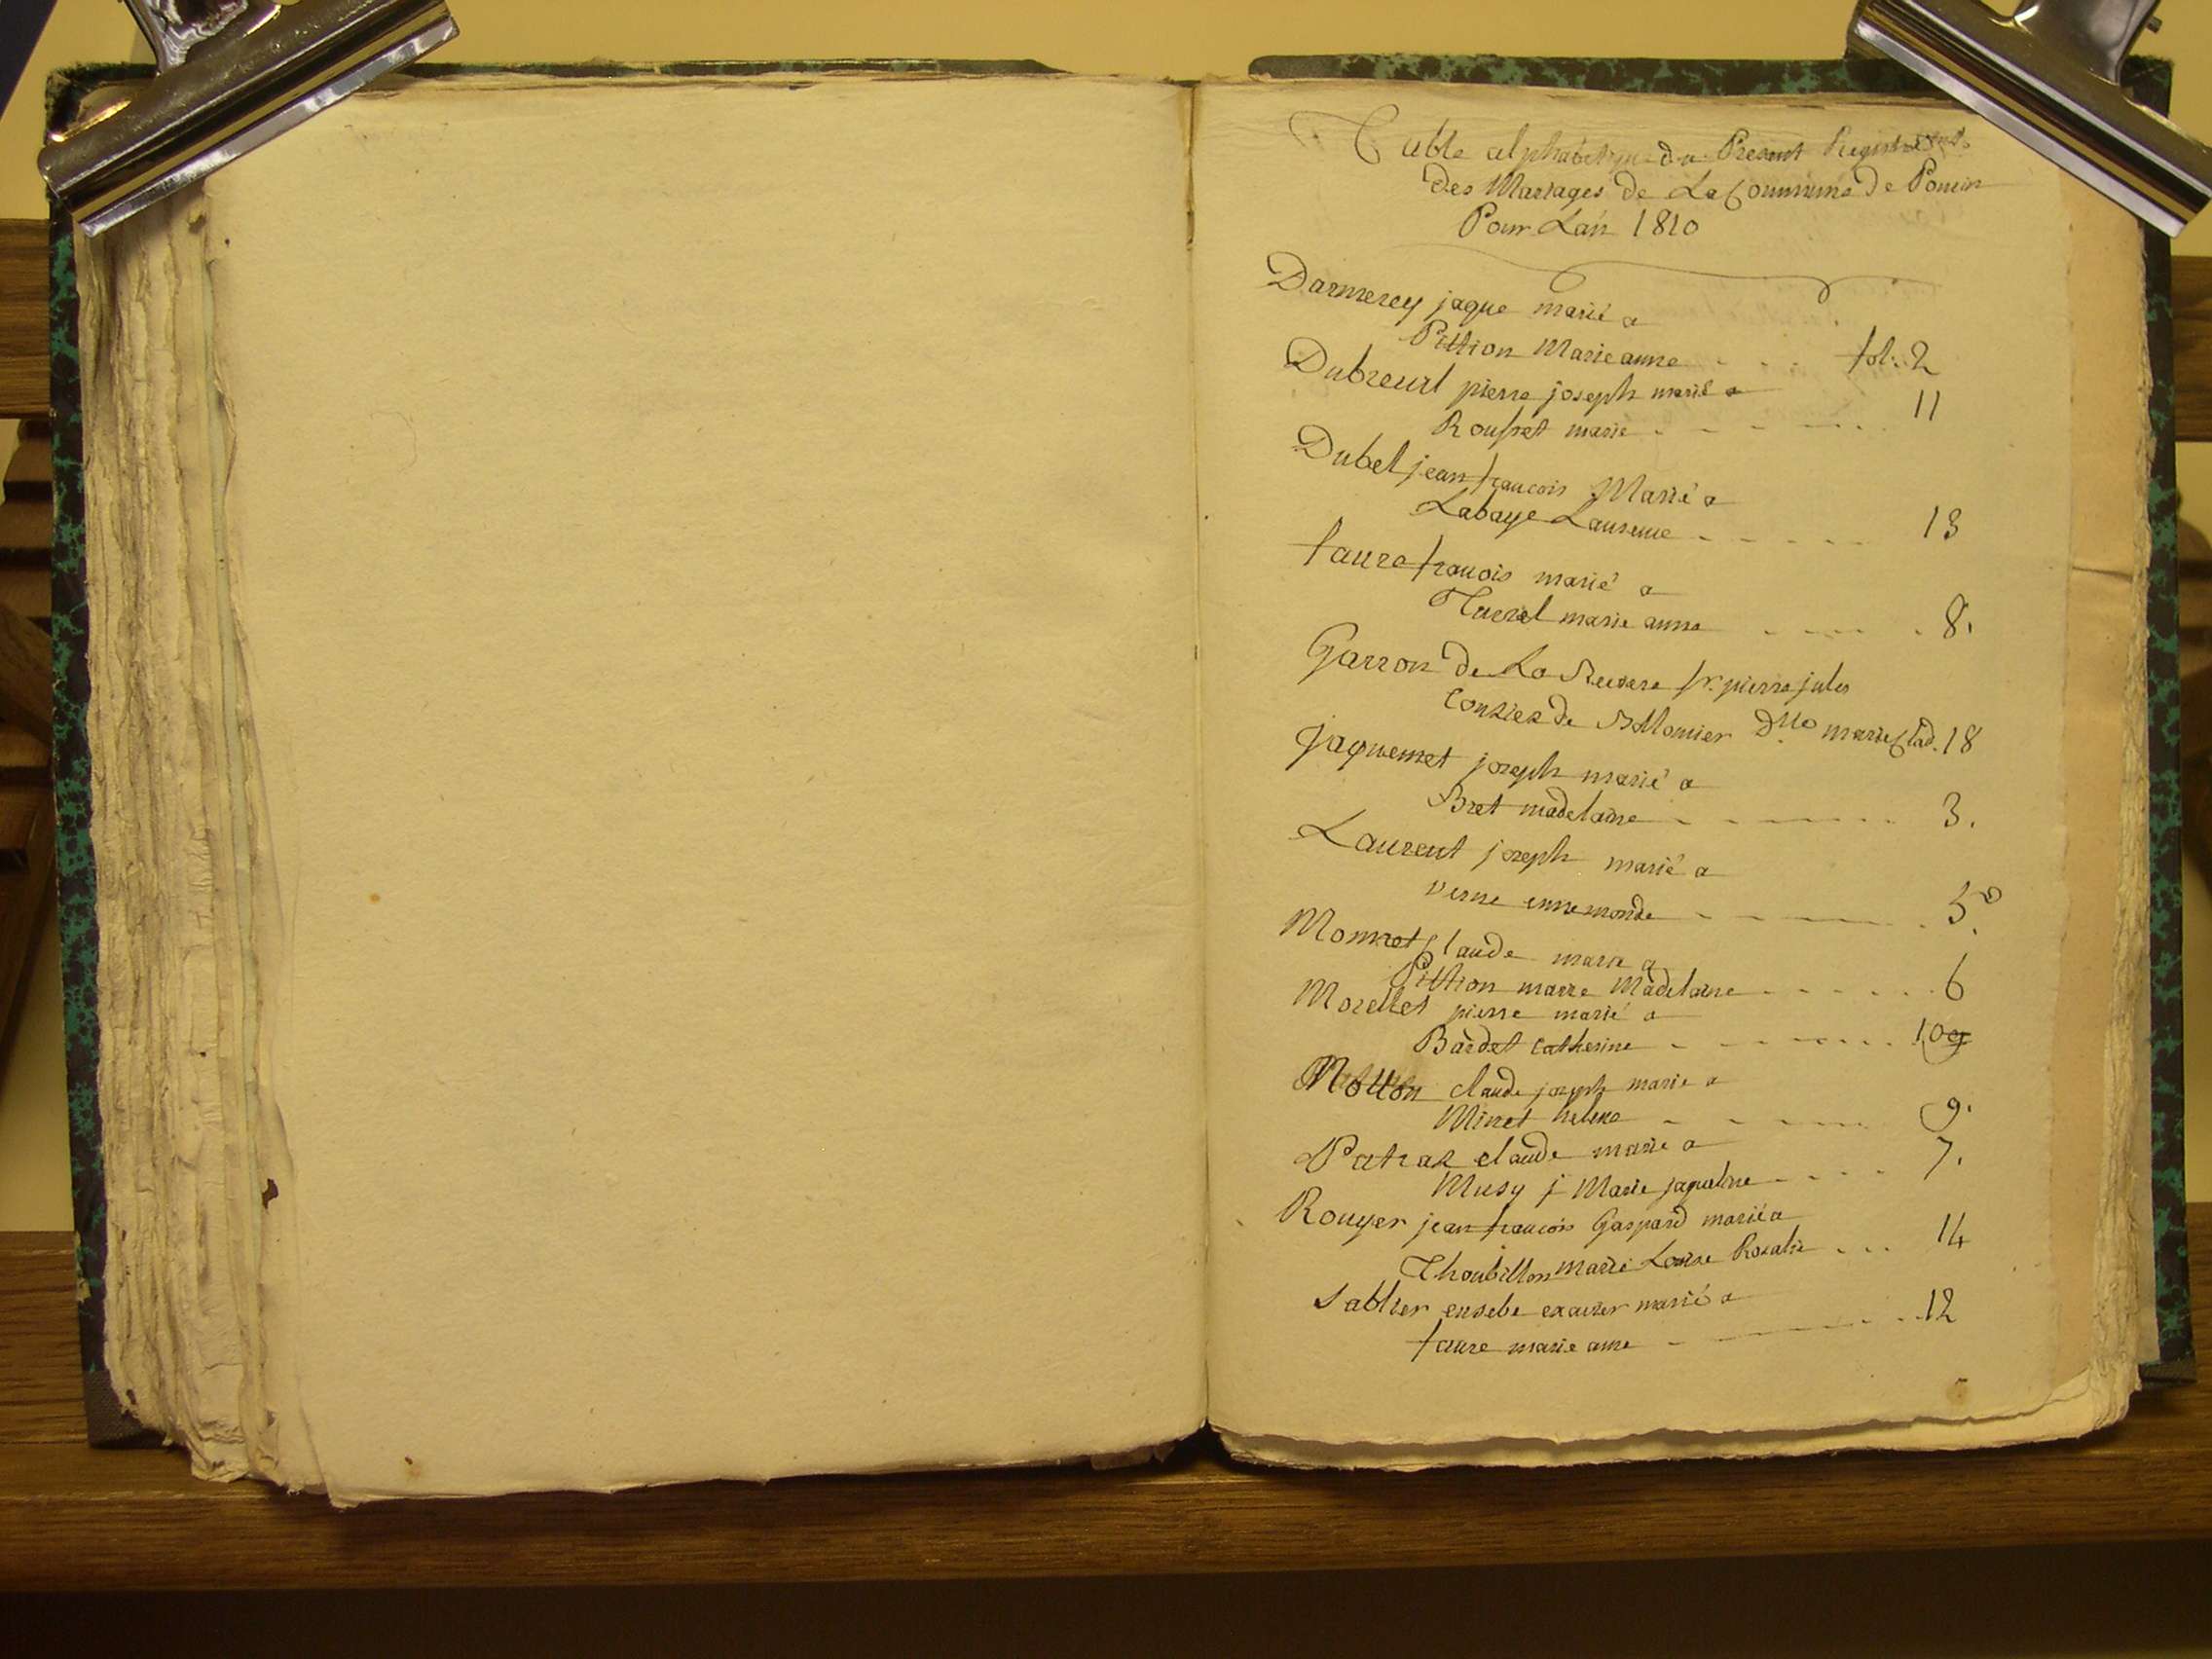 Table alphabetique du Present Registre
Des Mariages de La Commune de Poncin
Pour Lan 1810
Darmerey jaque marié a
Pittion Marie anne - - - fol. 2
Dubreuil pierre joseph marié a
Rousset marie - - - - 11
Dubel jean francois Marié a
Labaye Laurence - - - - - 13
faure francois marié a
Tueral marie anne - - - - 8.
Garron De La pierre jules
De Dlle marie Clad. 18
Jaquemet joseph marié a
Bret madelaine - - - - - 3.
Laurent joseph marié a
verne ennemonde - - - - - 5.
Monnet Claude marié a
Pittion marie Madelaine - - - - - 6
Morellet pierre marié a
Bardet Catherine - - - - - 10
Claude joseph marié a
Minet helene - - - - 9.
Patras claude marié a
Musy j Marie jaqueline - - - 7.
Rouyer jean francois Gaspard marié a
Thoubillon Marie Louise Rosalie - - - 14
Sablier eusebe exavier marié a
faure marie anne - - - - 12